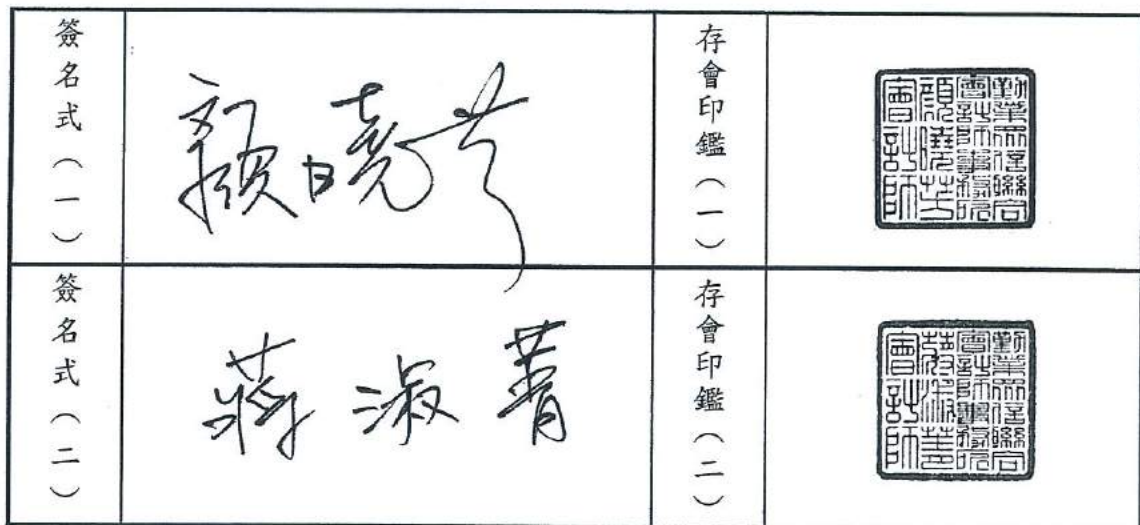 簽名式（一）
顏曉芳
存會印鑑（一）
勤業眾信聯合
會計師事務所
顏曉芳
會計師
簽名式（二）
蔣淑菁
存會印鑑（二）
勤業眾信聯合
會計師事務所
蔣淑菁
會計師